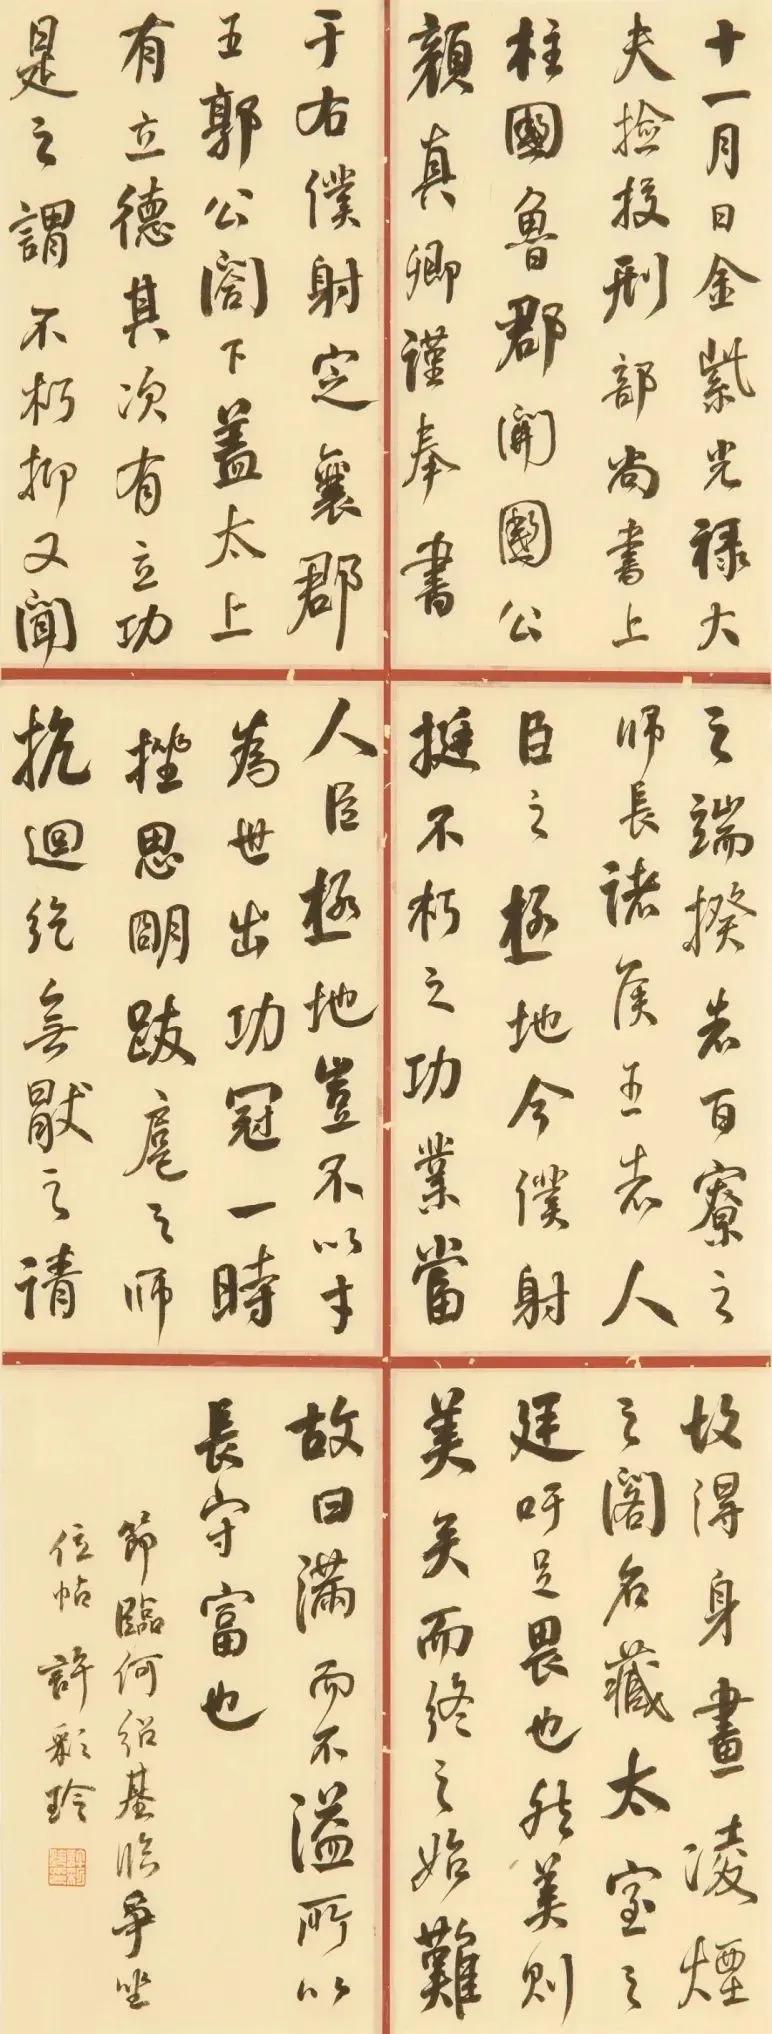 十一月日金紫光祿大
夫撿挍刑部尚書上
柱國魯郡開國公
顏真卿謹奉書
于右僕射定襄郡
王郭公閤下蓋太上
有立德其次有立功
是之謂不朽抑又聞
之端揆者百寮之
師長諸侯王者人
臣之極地今僕射
挺不朽之功業當
人臣極地豈不以才
為世出功冠一時
挫思明跋扈之師
抗迴紇無厭之請
故得身畫凌煙
之閣名藏太室之
廷吁足畏也然美則
美矣而終之始難
故曰滿而不溢所以
長守富也
節臨何紹基臨爭坐
位帖 許彩玲